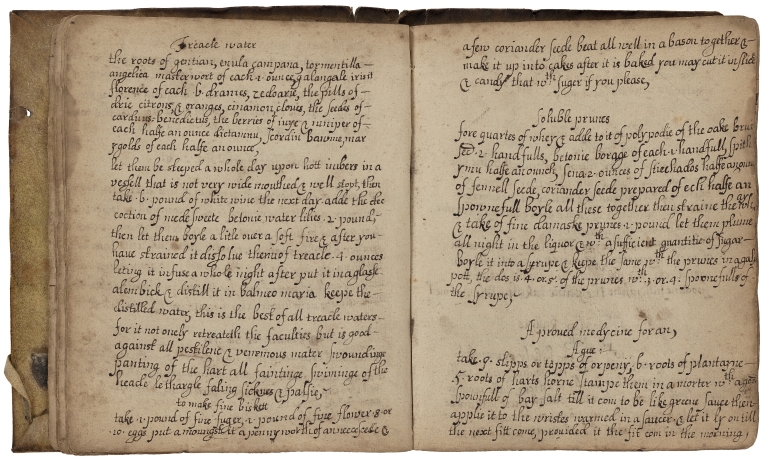 Treacle water
the roots of gentian, enula campana, tormentilla
angelica masterwort of each .1. ounce, galangale iris
florence of each .6. drames, zedoarie, the pills of
drie citrons & oranges, cinamon cloves, the seedes of
carduus benedictus, the berries of iuye & iuniper of
each halfe an ounce dictamnu, scordiu Bawme, mar
& golds of each halfe an ounce,
let them be steeped a whole day upon hott imbers in a
vessell that is not very wide mouthed & well stopt, then
take .6. pound of white wine the next day adde the dec
coction of mede sweete betonie water lilies .2. pound,
then let them boyle a litle over a soft fire & after you
have strained it dissolve them of treacle .4. ounces
leting it infuse a whole night after put it in a glasse
alembick & distill it in balneo maria keepe the
distilled water, this is the best of all treacle waters
for it not onely retreateth the faculties but is good
against all pestilenc & venemous water swoundinge
panting of the hart all faintinge swiminge of the
heade lethargie faling sicknes & palsie,
to make fine bisket
take .1. pound of fine suger, & 1 pound of fine flower .8. or
.10. eggs put a mongst it a penny worth of anneeseeds &
a few coriander seede beat all well in a bason together &
make it up into cakes after it is baked you may cut it in slices
& candy that wth suger if you please,
Soluble prunes
fore quartes of whey & adde to it of polypodie of the oake
.2. handfulls, betonie borage of each .1. handfull,
halfe an ounce, sena .2. ounces of sticchados halfe an ounce
of fennell seede, coriander seede prepared of ech halfe an
spownefull boyle all these together then straine the
& take of fine damaske prunes .1. pound let them plume
all night in the liquor & wth a sufficient quantitie of sugar
Boyle it into a syrupe & keepe the same wth the prunes in a gally
pott, the dos is .4. or .5. of the prunes wth .3. or .4. spownefulls of
the syrupe,
A proved medycine for an,
Ague:
take .9. slipps or topps of orpeny, 6. roots of plantayne
.5. roots of harts horne stampe them in a morter wth a good
spownfull of bay salt till it com to be like greene sauce then
applie it to the wristes warmed in a saucer & let it ly on till
the next fitt come, provided it the fit com in the morning,